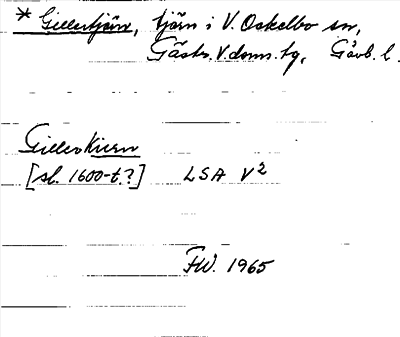 * Gillertjärn, tjärn i V. Ockelbo sn,
Gästr. V. doms. tg, Gävb. l.
Gillerkiern
[sl. 1600-t.?] LSA V2
FW. 1965